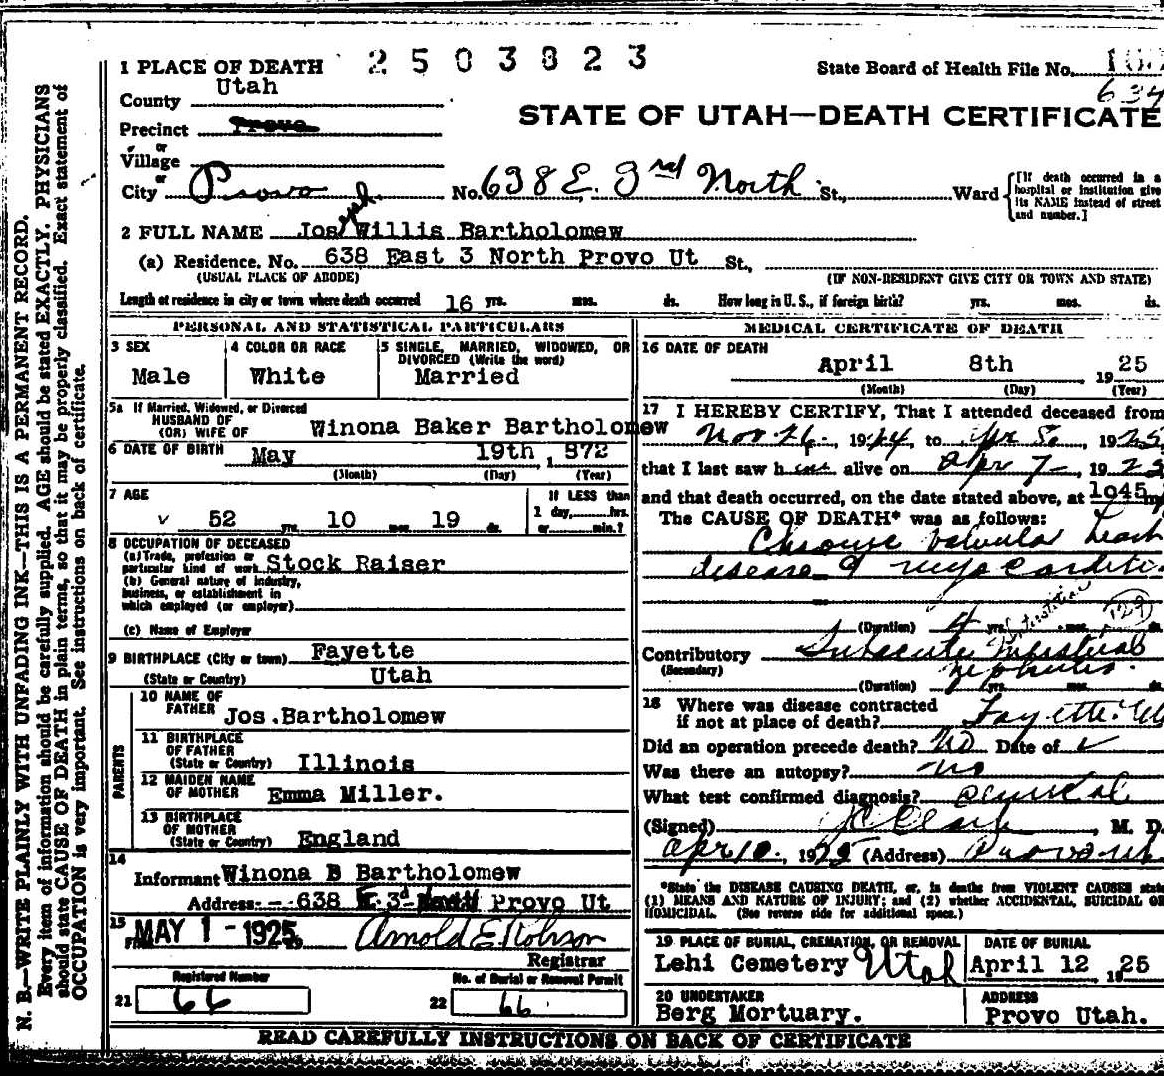 1 PLACE OF DEATH 2503823 State Board of Health File No.
County Utah 634
STATE OF UTAH—DEATH CERTIFICATE
Precinct Provo
or
Village
or
City Provo No. 638 E. 3rd North St., Ward [If death occurred in a hospital or institution give its NAME instead of street and number.]
2 FULL NAME Joseph Willis Bartholomew
(a) Residence. No. 638 East 3 North Provo Ut St.,
(USUAL PLACE OF ABODE) (IF NON-RESIDENT GIVE CITY OR TOWN AND STATE)
Length of residence in city or town where death occurred 16 yrs. mos. ds. How long in U. S., if foreign birth? yrs. mos. ds.
PERSONAL AND STATISTICAL PARTICULARS
3 SEX
Male
4 COLOR OR RACE
White
5 SINGLE, MARRIED, WIDOWED, OR
DIVORCED (Write the word)
Married
5a If Married, Widowed, or Divorced
HUSBAND OF
(OR) WIFE OF Winona Baker Bartholomew
6 DATE OF BIRTH May 19th , 1 872
(Month) (Day) (Year)
7 AGE
52 yrs. 10 mos. 19 ds.
If LESS than
1 day, hrs.
or min.?
8 OCCUPATION OF DECEASED
(a) Trade, profession or
particular kind of work Stock Raiser
(b) General nature of industry,
business, or establishment in
which employed (or employer)
(c) Name of Employer
9 BIRTHPLACE (City or town) Fayette
(State or Country) Utah
PARENTS
10 NAME OF
FATHER Jos. Bartholomew
11 BIRTHPLACE
OF FATHER
(State or Country) Illinois
12 MAIDEN NAME
OF MOTHER Emma Miller.
13 BIRTHPLACE
OF MOTHER
(State or Country) England
14
Informant Winona B Bartholomew
Address 638 E 3d North Provo Ut
15 MAY 1 - 1925 Arnold E Robison
Registrar
Registered Number
21 66
No. of Burial or Removal Permit
22 66
MEDICAL CERTIFICATE OF DEATH
16 DATE OF DEATH
April 8th 19 25
(Month) (Day) (Year)
17 I HEREBY CERTIFY, That I attended deceased from
Nov 26, 1924, to Apr 8, 1925
that I last saw him alive on Apr 7 1925
and that death occurred, on the date stated above, at 1045 m
The CAUSE OF DEATH* was as follows:
Chronic valvular heart
disease & myocarditis
(Duration) 4 yrs. mos. ds.
Interstitial 129
Contributory Subacute Interstitial
(Secondary) nephritis.
(Duration) yrs. mos. ds.
18 Where was disease contracted
if not at place of death? Fayette. Ut
Did an operation precede death? No Date of
Was there an autopsy? no
What test confirmed diagnosis? clinical
(Signed) , M. D.
Apr 10, 1925 (Address) Provo Ut
*State the DISEASE CAUSING DEATH, or, in deaths from VIOLENT CAUSES state
(1) MEANS AND NATURE OF INJURY; and (2) whether ACCIDENTAL, SUICIDAL OR
HOMICIDAL. (See reverse side for additional space.)
19 PLACE OF BURIAL, CREMATION, OR REMOVAL
Lehi Cemetery Utah
DATE OF BURIAL
April 12 , 19 25
20 UNDERTAKER
Berg Mortuary.
ADDRESS
Provo Utah.
READ CAREFULLY INSTRUCTIONS ON BACK OF CERTIFICATE
N. B.—WRITE PLAINLY WITH UNFADING INK—THIS IS A PERMANENT RECORD.
Every item of information should be carefully supplied. AGE should be stated EXACTLY. PHYSICIANS
should state CAUSE OF DEATH in plain terms, so that it may be properly classified. Exact statement of
OCCUPATION is very important. See instructions on back of certificate.